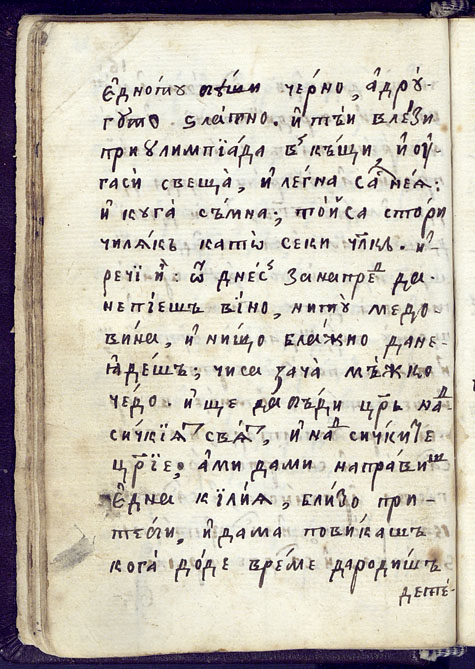 є҆дномꙋ пѣши че́рно, а҆дрꙋ́
гѡто ѕла́тно. и҆ тъ́и влѣ́зи
приѹлимпїа́да въ кѫ́щи, и҆ оу҆
гаси́ свеща̀, и҆ ле́гна са̑ не́ꙗ:
и҆ кꙋга̀ съ́мна; то́й са стори̏
чилѧ́къ като̀ѡ секи чл҃къ. и҆
речї и҆̀: ѿ дне́съ занапрѣⷣ да
непїешъ ви́но, нитꙋ̀ медо
ви́на, и҆ ни́що бла́жно дане
ꙗ҆де́шъ; чиса зача̀ мѫ́жко
че́до. и҆ ще да бѫ́ди цр҃ь наⷣ
си́чкїѧⷮ свѣⷮ, и҆ наⷣ си́чкиⷮе
цр҃їе; а҆ми да ми напра́виⷲ
є҆дна кїли́ѧ, бли́зо при
тѣби, и҆ да ма пови́кашъ
кога̀ до́де вре́ме да родишъ
дете́.